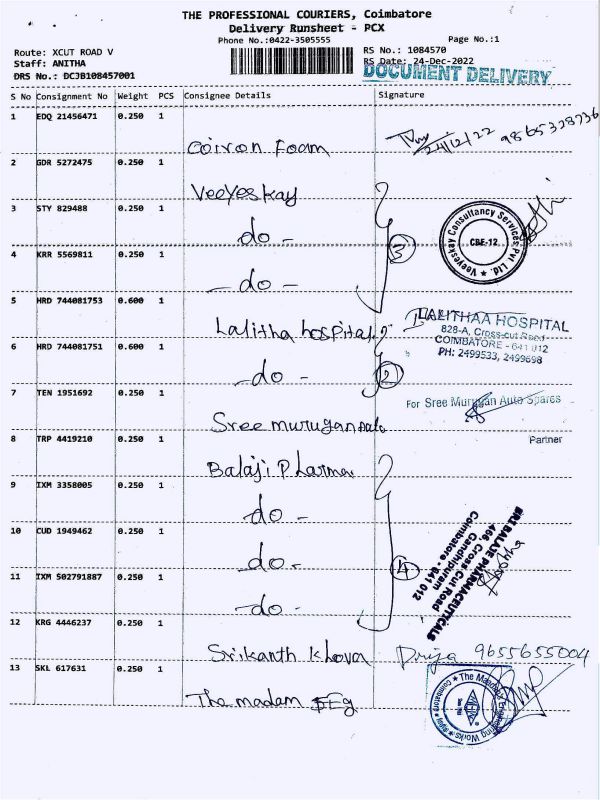 THE PROFESSIONAL COURIERS, Coimbatore
Delivery Runsheet - PCX
Phone No.:0422-3505555
Page No.:1
Route: XCUT ROAD V
RS No.: 1084570
Staff: ANITHA
RS Date: 24-Dec-2022
DRS No.: DCJB108457001
DOCUMENT DELIVERY
S No Consignment No Weight PCS Consignee Details Signature
1 EDQ 21456471 0.250 1
Coiron Foam 24/12/22 9865328736
2 GDR 5272475 0.250 1
Veeyeskay
3 STY 829488 0.250 1
do -
Veeyeskay Consultancy Services Pvt Ltd. ★
CBE-12
4 KRR 5569811 0.250 1
3
- do -
5 HRD 744081753 0.600 1
Lalitha hospital
LALITHAA HOSPITAL
828-A, Cross-cut Road
COIMBATORE - 641 012
PH: 2499533, 2499698
6 HRD 744081751 0.600 1
- do - 2
7 TEN 1951692 0.250 1
For Sree Murugan Auto Spares
Sree murugan
Partner
8 TRP 4419210 0.250 1
Balaji Pharma
9 IXM 3358005 0.250 1
- do -
10 CUD 1949462 0.250 1
- do -
SRI BALAJE PHARMACEUTICALS
466, Cross Cut Road
Gandhipuram
Coimbatore - 641 012
11 IXM 502791887 0.250 1
4
- do -
12 KRG 4446237 0.250 1
Srikanth Khova Priya 9655655004
13 SKL 617631 0.250 1
The madam Eg